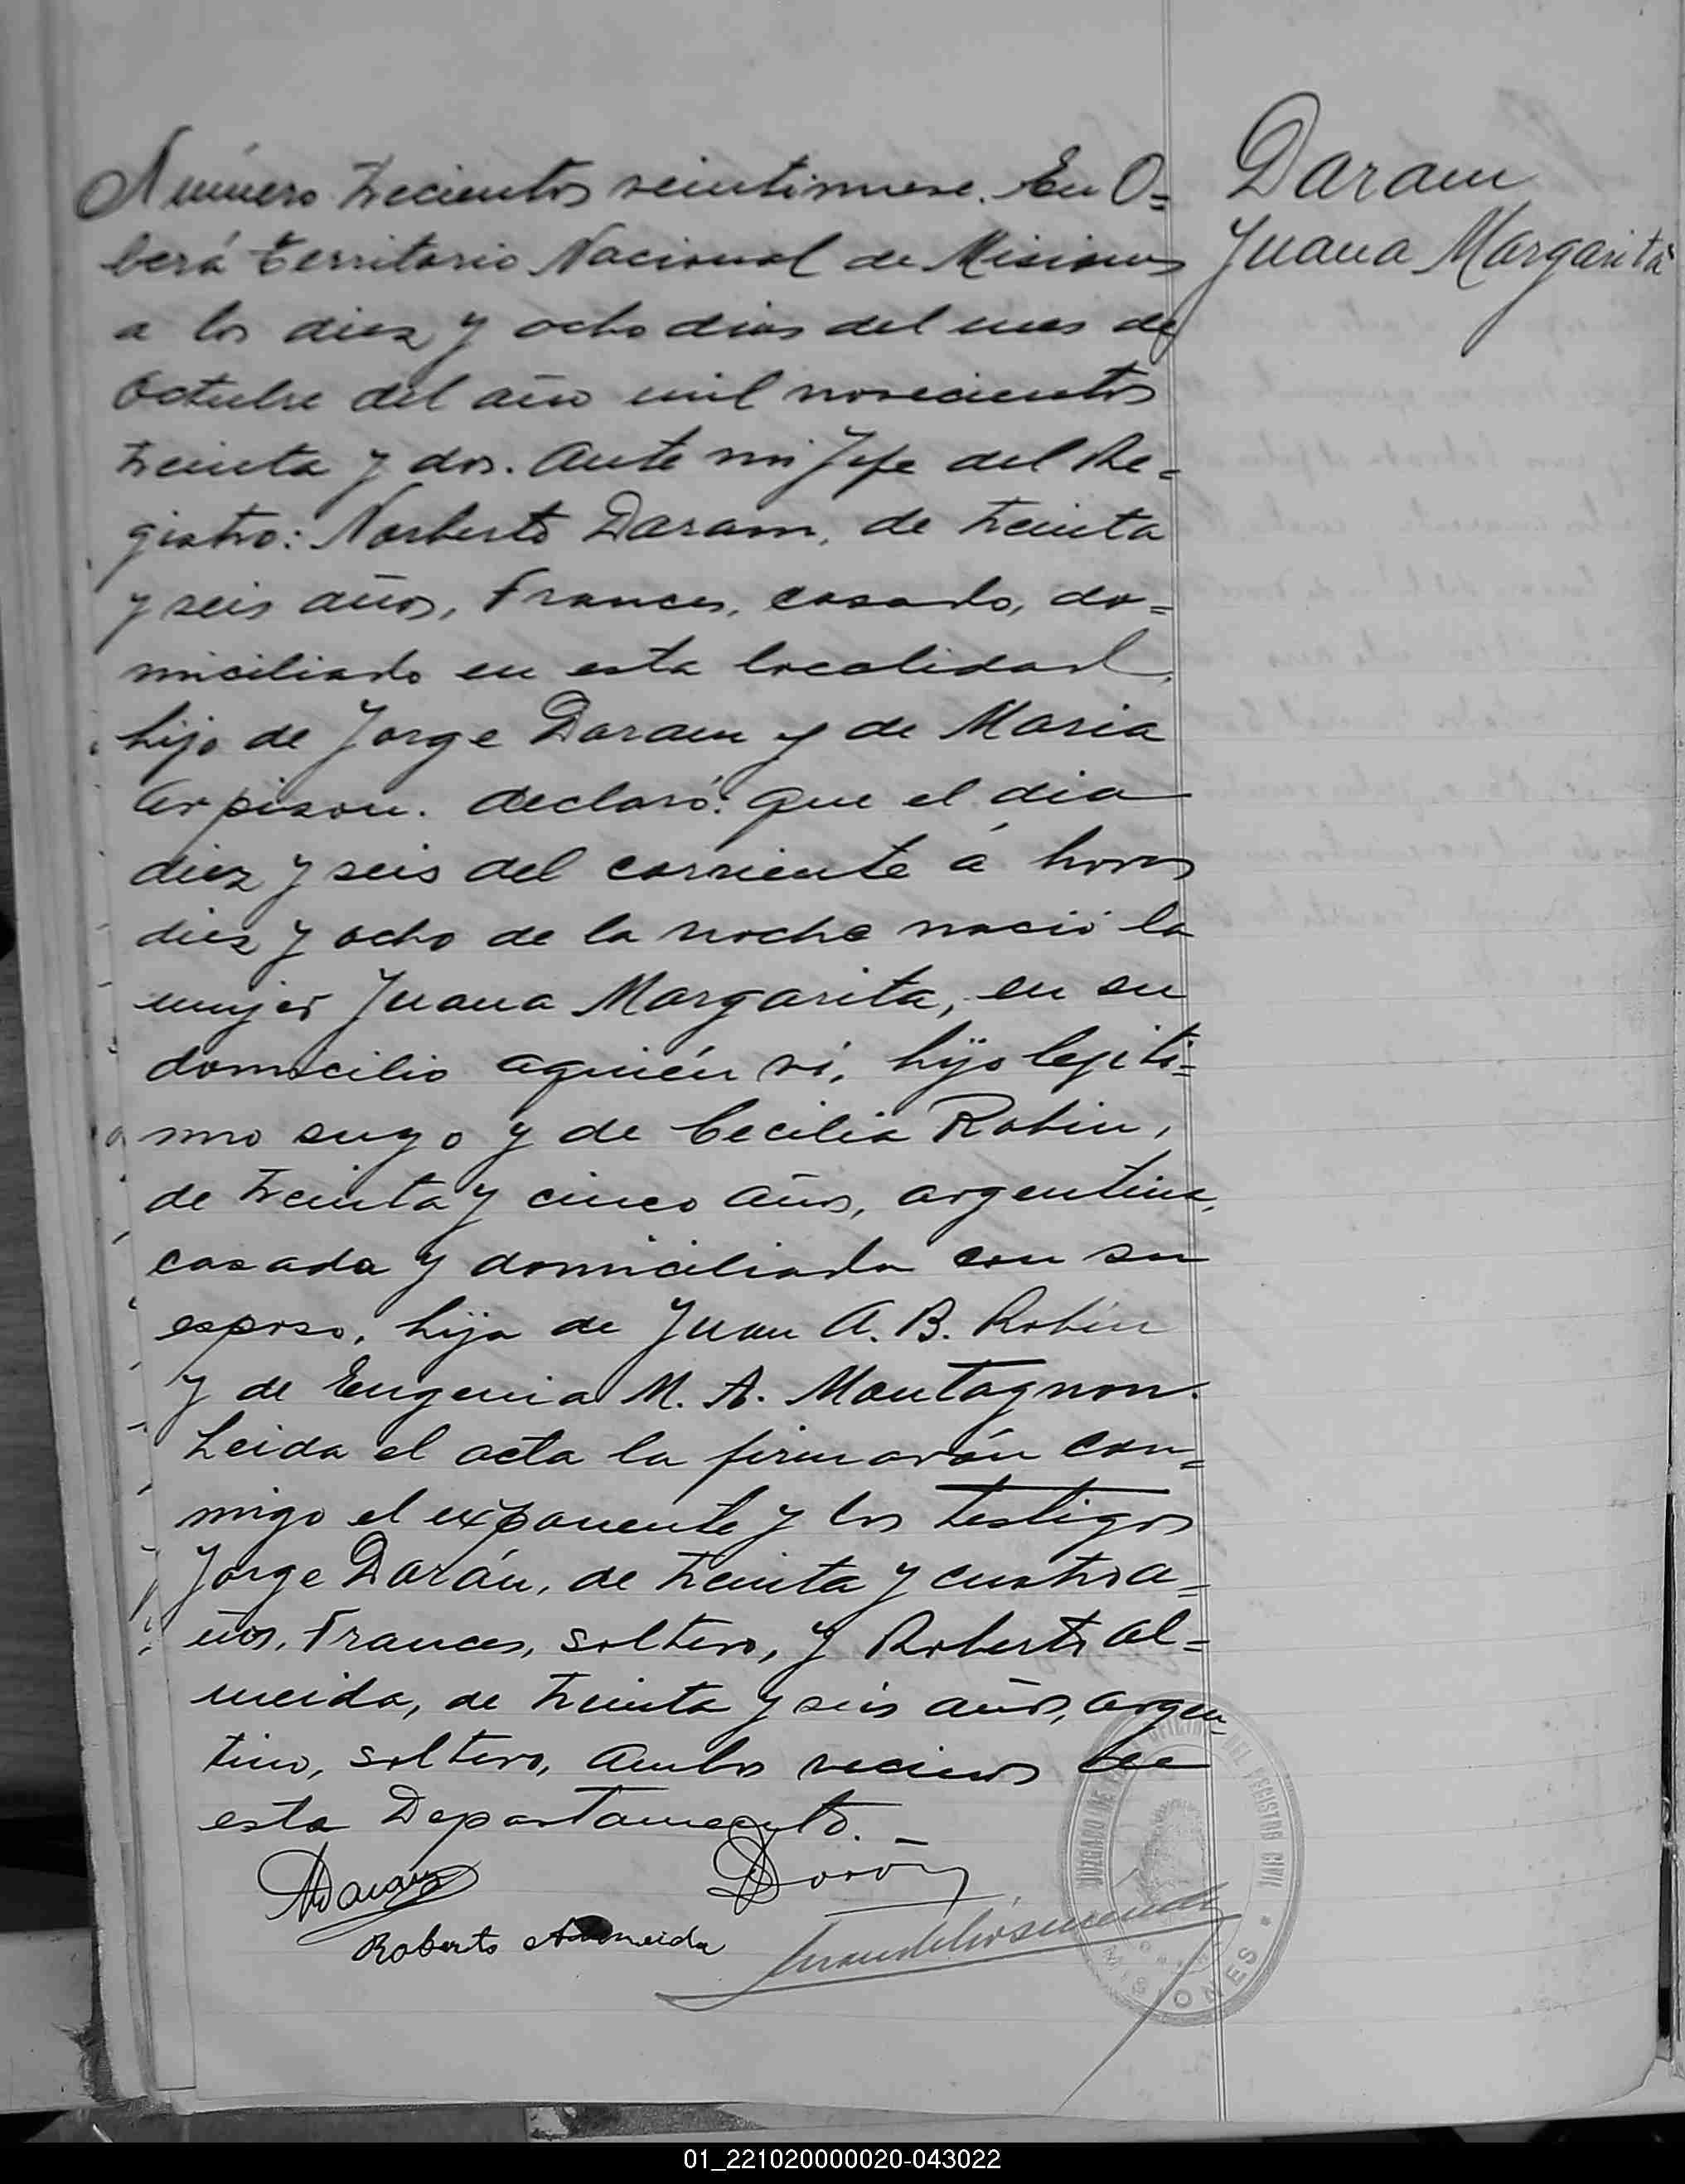 Número trecientos veintinueve. En O=
Daram
Juana Margarita
berá territorio Nacional de Misiones
a los diez y ocho dias del mes de
Octubre del año mil novecientos
treinta y dos. Ante mi Jefe del Re=
gistro: Norberto Daram, de treinta
y seis años, Frances, casado, do=
miciliado en esta localidad,
hijo de Jorge Daram y de Maria
declaró: que el dia
diez y seis del corriente á horas
diez y ocho de la noche nació la
mujer Juana Margarita, en su
domicilio aquién ví, hijo legiti=
mo suyo y de Cecilia Robin,
de treinta y cinco años, argentina,
casada y domiciliada con su
esposo, hija de Juan A. B. Robin
y de Eugenia M. A. Montagnon.
Leida el acta la firmarón con=
migo el exponente y los testigos
Jorge Darán, de treinta y cuatro a=
ños, Frances, soltero, y Roberto Al=
meida, de treinta y seis años, argen=
tino, soltero, ambos vecinos de
este Departamento. —
NDaram
Darán
Roberto Almeida
JUZGADO DE PAZ
DEL REGISTRO CIVIL
MISIONES
01_221020000020-043022